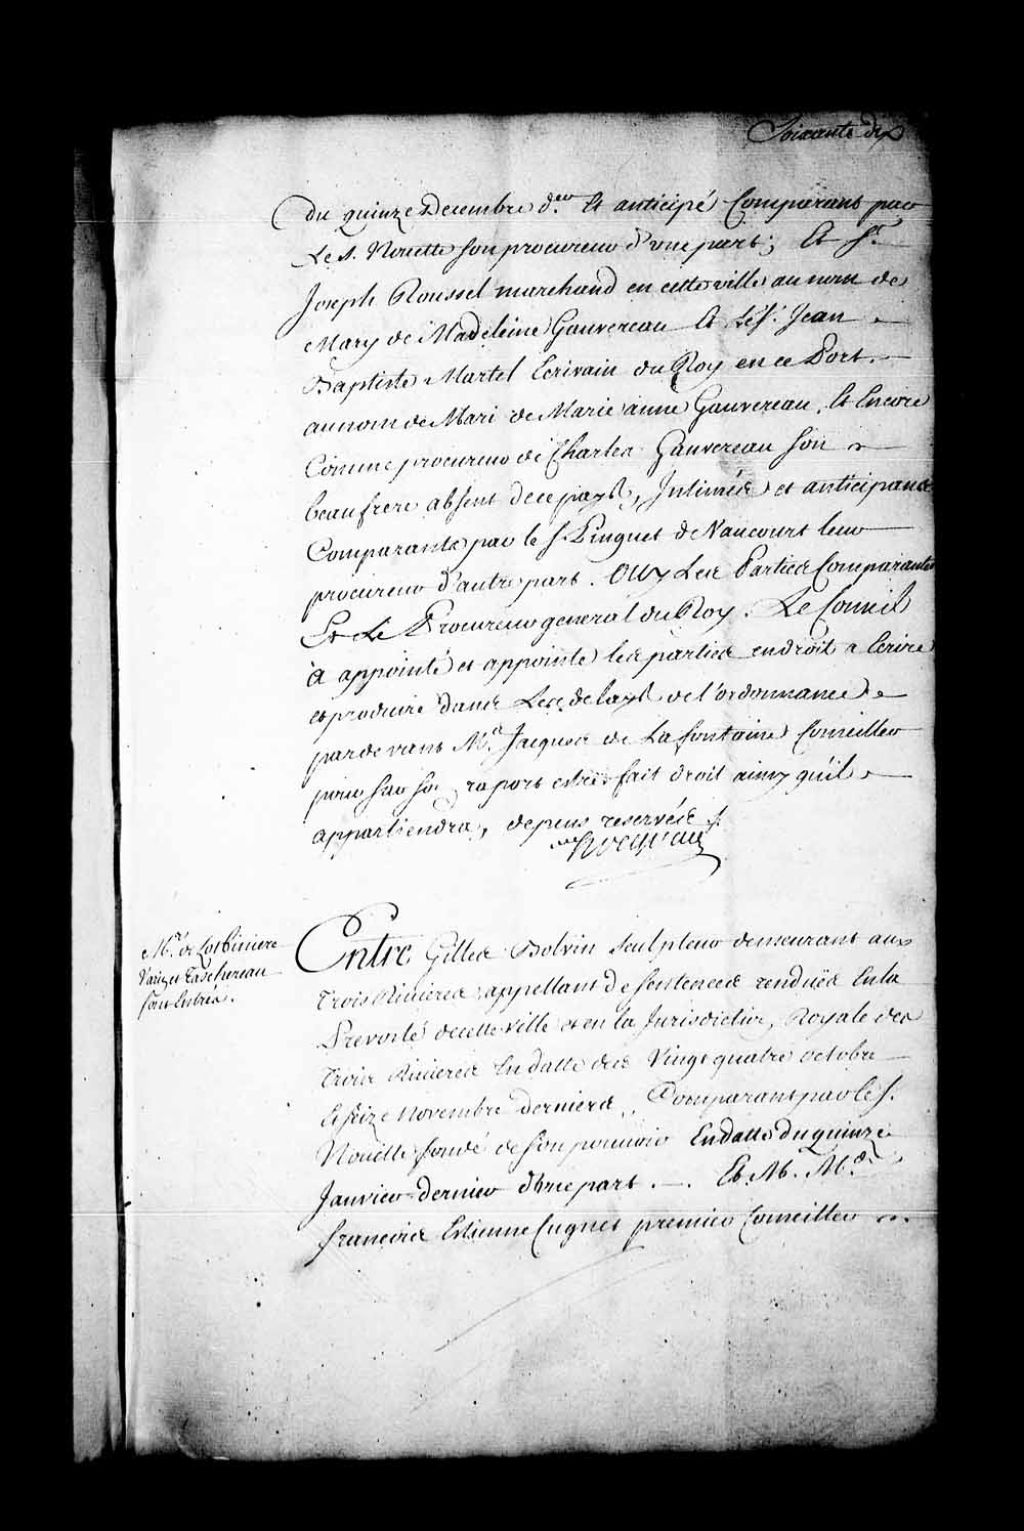 Soixante dix
du quinze Decembre d.er Et anticipé Comparant par
Le s. Nouette son procureur d'une part; Et Sr.
Joseph Roussel marchand en cette ville au nom de
Mary de Madeleine Gauvereau Et Le s.r Jean
Baptiste Martel Ecrivain du Roy en ce Port
au nom de Mari de Marie anne Gauvereau, Et Encore
Comme procureur de Charles Gauvereau Son
beaufrere absent de ce pays, Intimés et anticipans
Comparants par le S. Pinguet de Vaucourt leur
procureur d'autre part. Ouy Les Parties Comparantes
Et Le Procureur general du Roy. Le Conseil
à appointé et appointe les parties en droit a Ecrire
et produire dans Les delays de l'ordonnance
pardevant M.e Jacques de Lafontaine Conseiller
pour sur son raport estre fait droit ainsy qu'il
appartiendra, depens reservés
Hocquart
M.rs de Lotbiniere
Varin et Taschereau
sont Entrés.
Entre Gilles Bolvin Sculpteur demeurant aux
Trois Rivieres appellant de Sentences rendües En la
Prevosté de cette ville et en la Jurisdiction Royale des
Trois Rivieres En datte des Vingt quatre octobre
Et seize novembre derniers, Comparant par le S.
Nouette fondé de son pouvoir En datte du quinze
Janvier dernier d'une part. Et M. M.e
francois Estienne Cugnet premier Conseiller